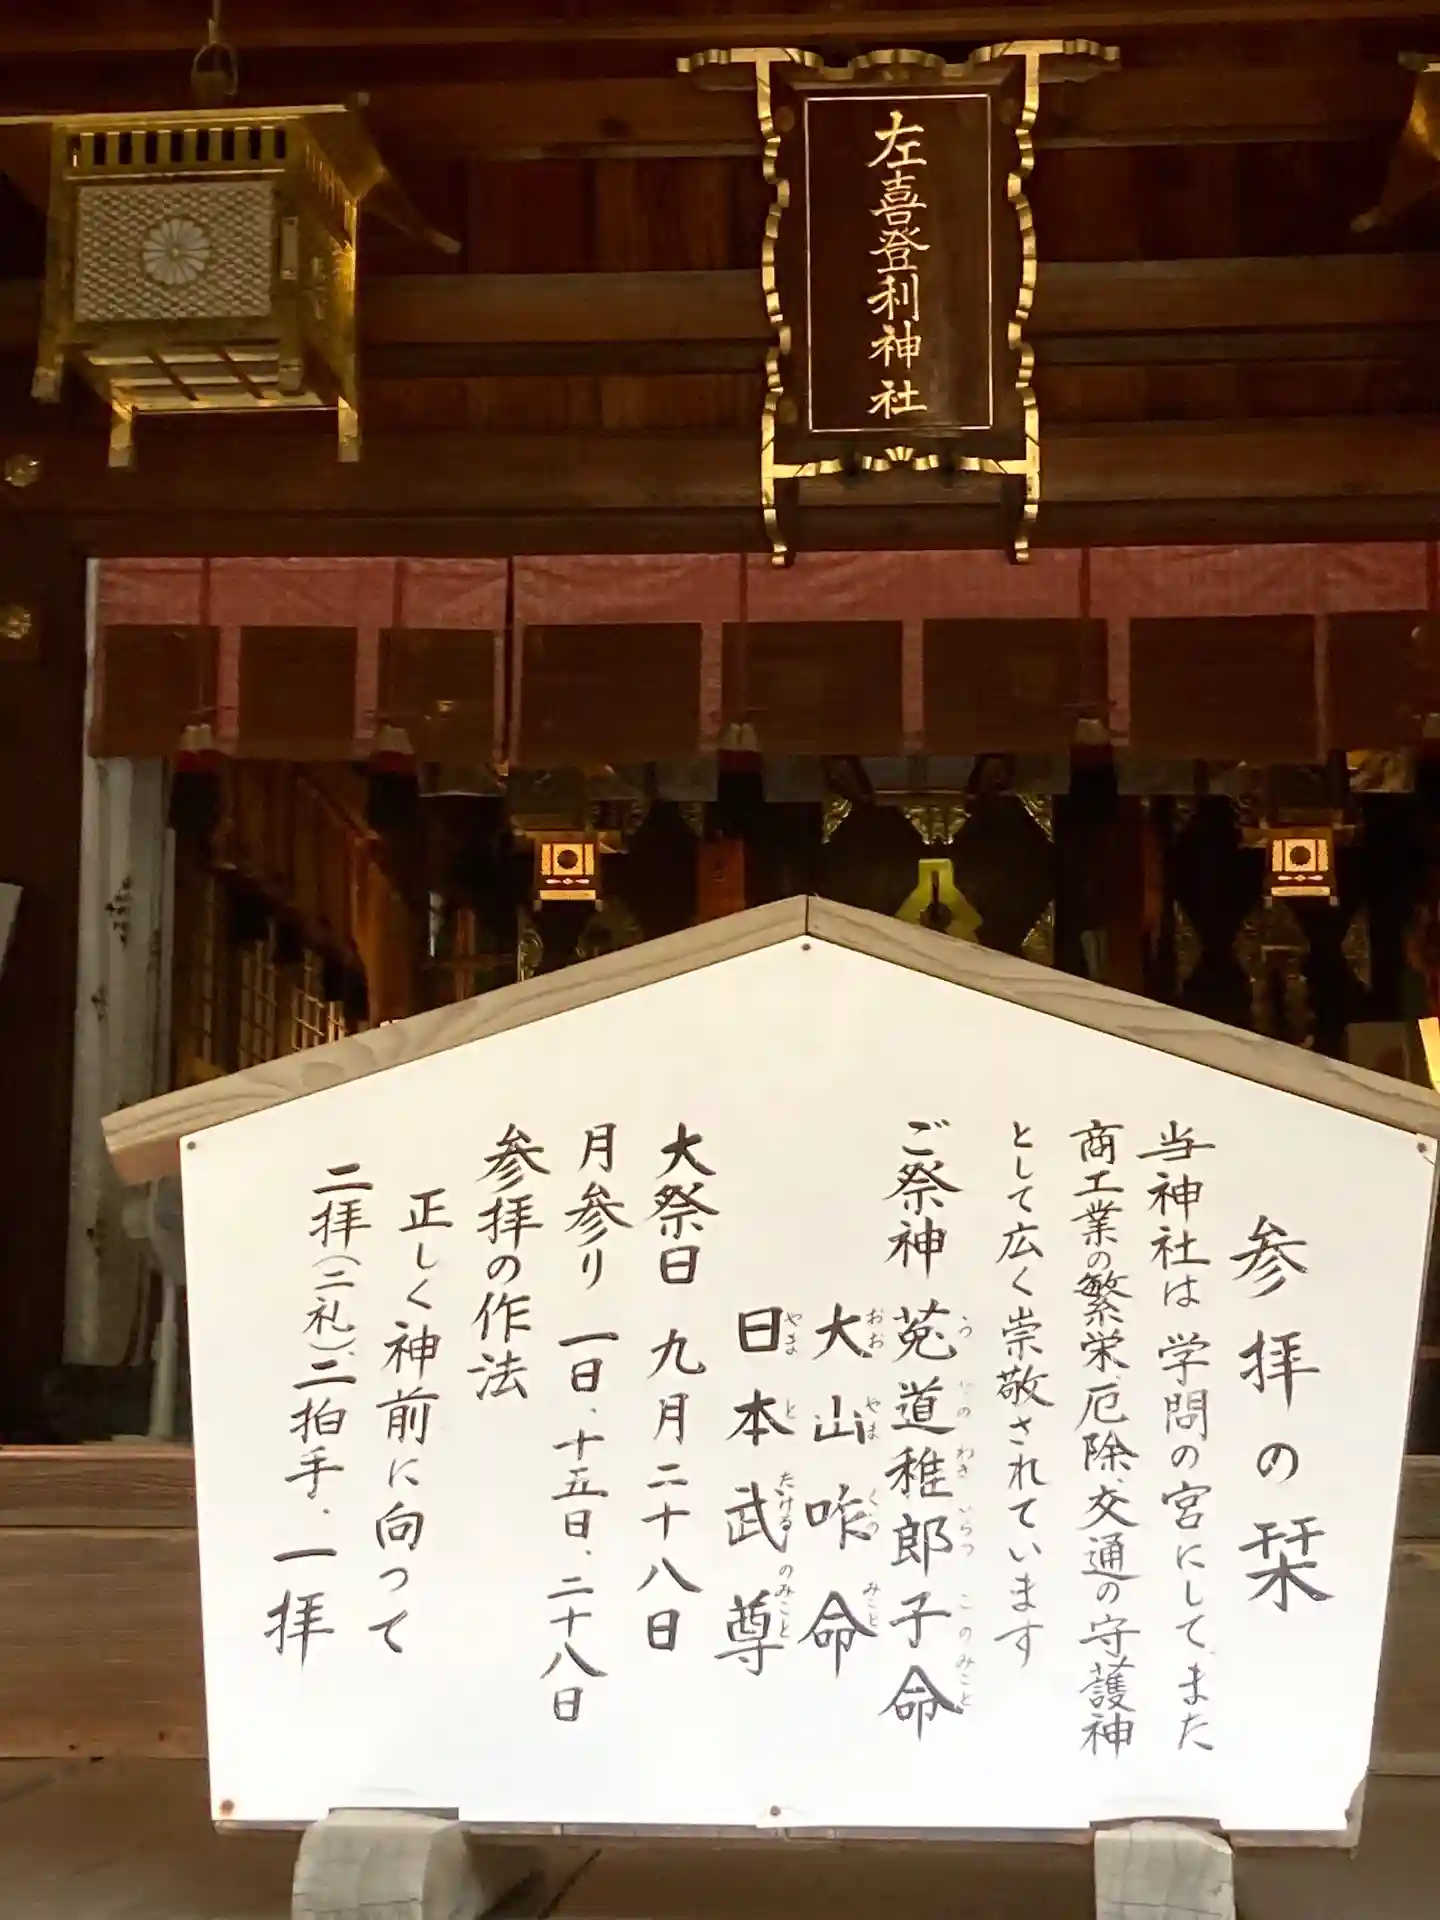 左喜登利神社
参拝の栞
当神社は学問の宮にして、また
商工業の繁栄、厄除、交通の守護神
として広く崇敬されています
ご祭神 菟道稚郎子命
大山咋命
おお やま くつ みこと
日本武尊
やま と たける のみこと
大祭日 九月二十八日
月参り 一日、十五日、二十八日
参拝の作法
正しく神前に向って
二拝(二礼)、二拍手、一拝